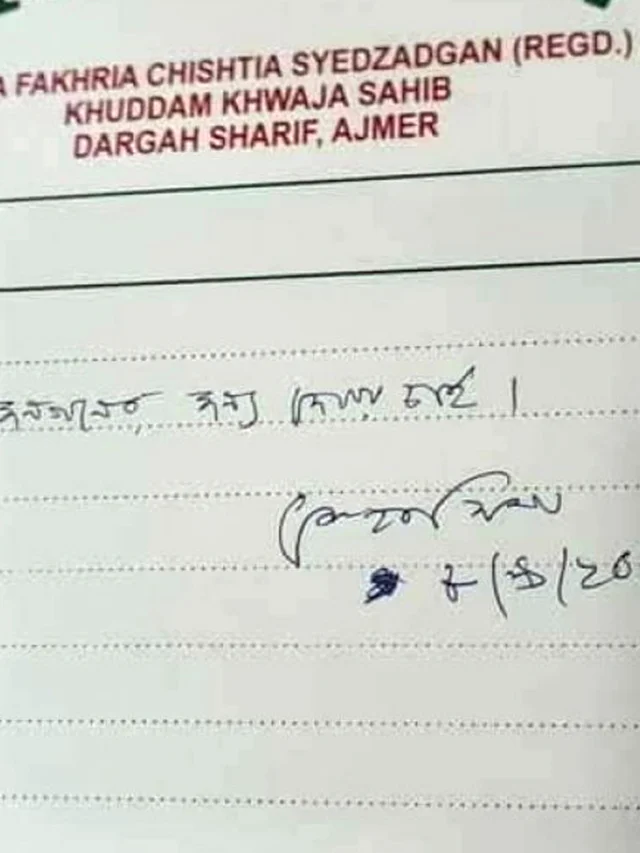 A FAKHRIA CHISHTIA SYEDZADGAN (REGD.)
KHUDDAM KHWAJA SAHIB
DARGAH SHARIF, AJMER
জন্য দোয়া চাই।
শেখ হাসিনা
৮/৯/২০